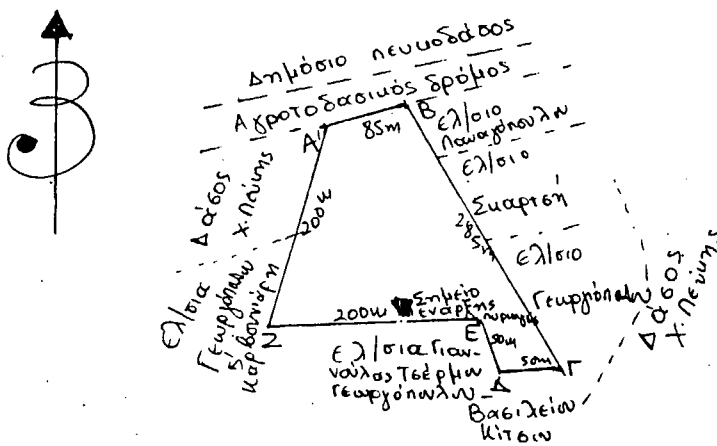 Β
Δημόσιο πευκοδάσος
Αγροτοδασικός δρόμος
Α
85m
Β
ελ/σιο
Παναγόπουλου
ελ/σιο
Σκαρτσή
285m
ελ/σιο
Γεωργόπουλου
Δάσος
χ. Πεύκης
Δάσος
χ. Πεύκης
200m
ελ/σια
Γεωργόπουλου
Καρβουνιάρη
Ζ
200m
Σημείο
ενάρξης
πυρκαγιάς
Ε
50m
Δ
50m
Γ
ελ/σια Γιαν-
νούλας Τσέρμου
Γεωργόπουλου
Βασιλείου
Κίτσιου